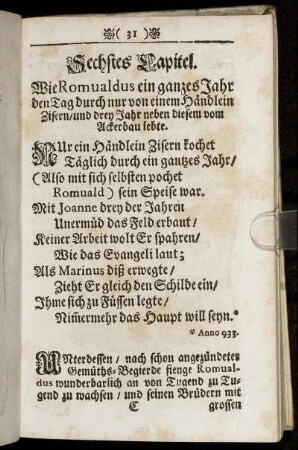 ( 31 )
Sechstes Capitel.
Wie Romualdus ein ganzes Jahr
den Tag durch nur von einem Händlein
Zisern/und drey Jahr neben diesem vom
Ackerbau lebte.
NUr ein Händlein Zisern kochet
Täglich durch ein gantzes Jahr/
(Also mit sich selbsten pochet
Romuald) sein Speise war.
Mit Joanne drey der Jahren
Unermüd das Feld erbaut/
Keiner Arbeit wolt Er spahren/
Wie das Evangeli laut;
Als Marinus diß erwegte/
Zieht Er gleich den Schilde ein/
Ihme sich zu Füssen legte/
Nim̃ermehr das Haupt will seyn.*
* Anno 933.
UNterdessen / nach schon angezündeter
Gemüths-Begierde fienge Romual-
dus wunderbarlich an von Tugend zu Tu-
gend zu wachsen / und seinen Brüdern mit
C grossen